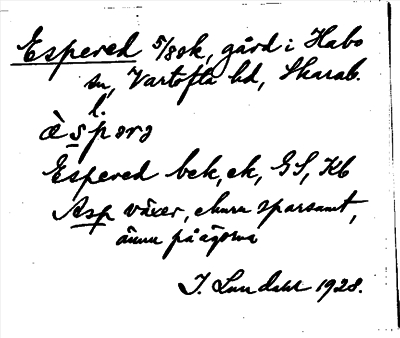 Espered 5/8 ok, gård i Habo
sn, Vartofta hd, Skarab.
l.
èspərə
Espered bek, ek, GS, Kb
Asp växer, ehuru sparsamt,
ännu på ägorna
J. Lundahl 1928.